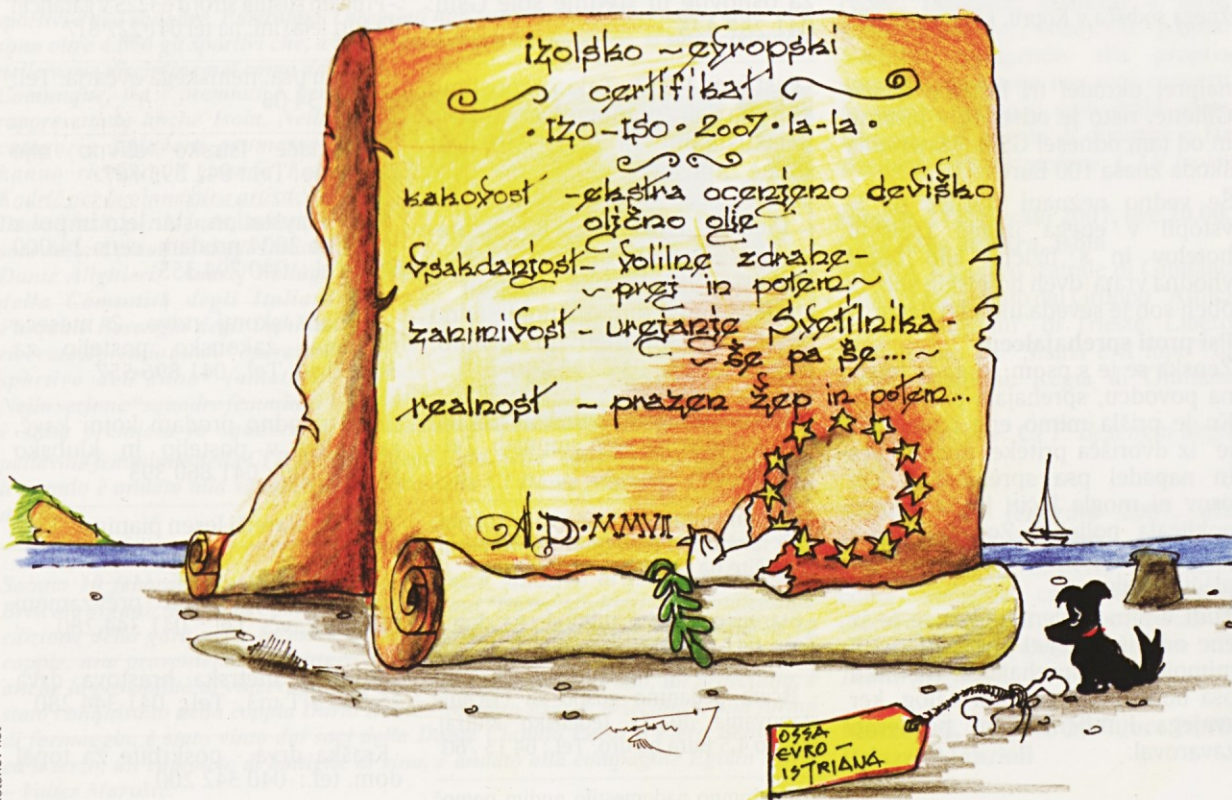 izolsko - evropski
certifikat
• IZO-ISO • 2007 • la-la •
kakovost - ekstra ocenjeno deviško
oljčno olje
vsakdanjost - volilne zdrahe -
~ prej in potem ~
zanimivost - urejanje Svetilnika -
~ še pa še... ~
realnost - prazen žep in potem...
A•D•MMVII
OSSA
EVRO -
ISTRIANA